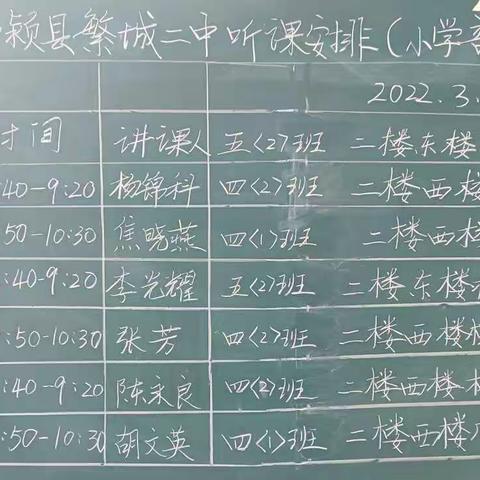 颖县繁城二中听课安排(小学
2022.3.
时间 讲课人 五〈2〉班 二楼东楼
:40-9:20 杨锦科 四〈2〉班 二楼西楼
:50-10:30 焦晓燕 四〈1〉班 二楼西楼
:40-9:20 李光耀 五〈2〉班 二楼东楼
:50-10:30 张芳 四〈2〉班 二楼西楼梯
:40-9:20 陈永良 四〈2〉班 二楼西楼梯
:50-10:30 胡文英 四〈1〉班 二楼西楼